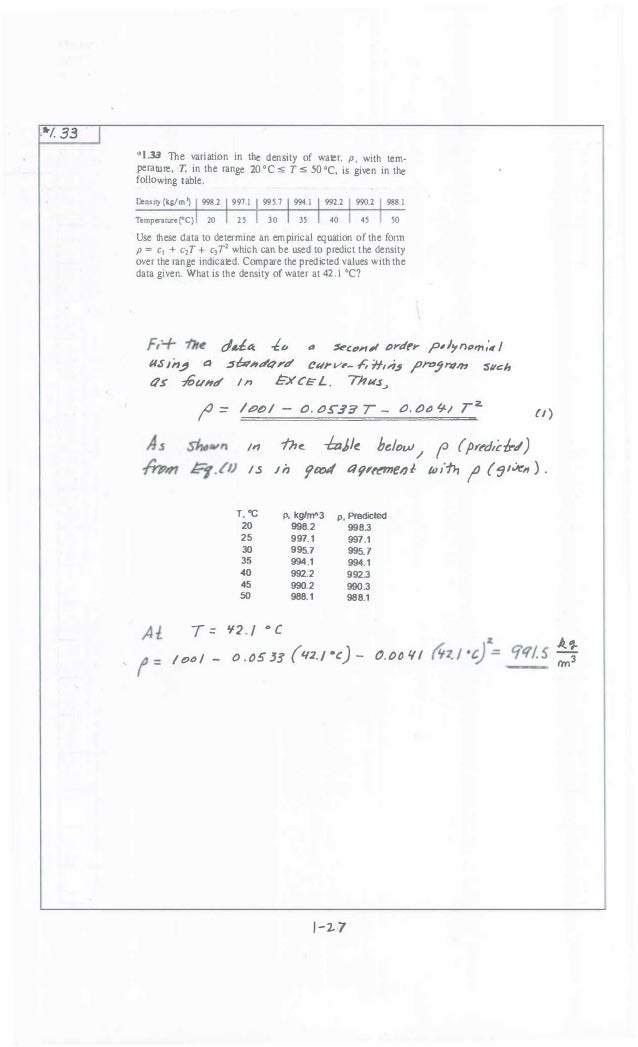 *1.33
*1.33 The variation in the density of water, ρ, with tem-
perature, T, in the range 20 °C ≤ T ≤ 50 °C, is given in the
following table.
Density (kg/m³) | 998.2 | 997.1 | 995.7 | 994.1 | 992.2 | 990.2 | 988.1
Temperature (°C) | 20 | 25 | 30 | 35 | 40 | 45 | 50
Use these data to determine an empirical equation of the form
ρ = c₁ + c₂T + c₃T² which can be used to predict the density
over the range indicated. Compare the predicted values with the
data given. What is the density of water at 42.1 °C?
Fit the data to a second order polynomial
using a standard curve-fitting program such
as found in EXCEL. Thus,
ρ = 1001 - 0.0533 T - 0.0041 T² (1)
As shown in the table below, ρ (predicted)
from Eq.(1) is in good agreement with ρ (given).
T, °C ρ, kg/m^3 ρ, Predicted
20 998.2 998.3
25 997.1 997.1
30 995.7 995.7
35 994.1 994.1
40 992.2 992.3
45 990.2 990.3
50 988.1 988.1
At T = 42.1 °C
ρ = 1001 - 0.0533 (42.1°C) - 0.0041 (42.1°C)² = 991.5 kg/m³
1-27